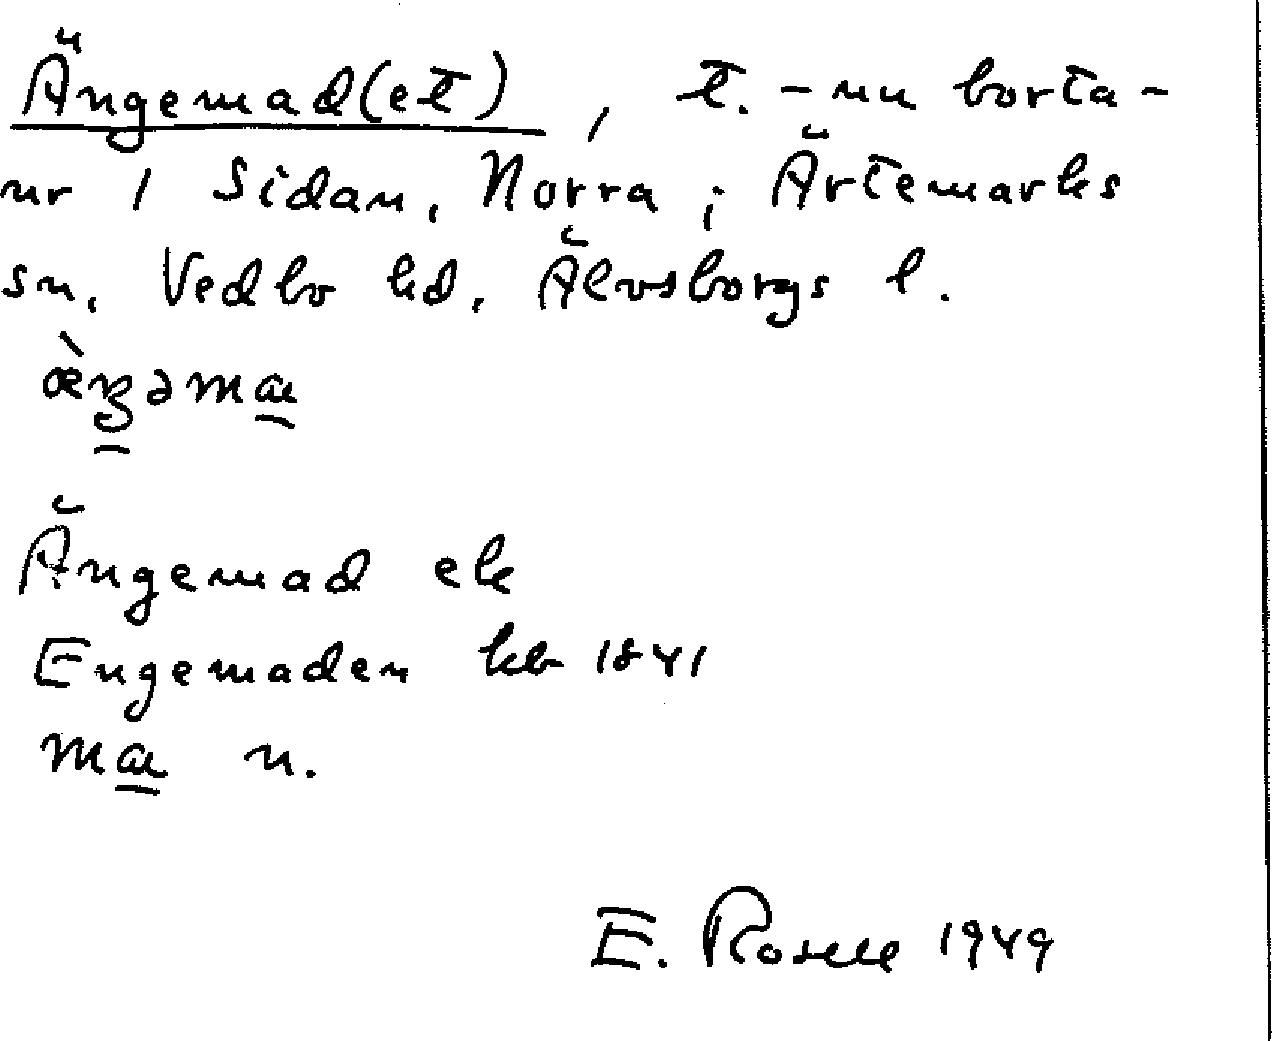 Ängemad(et), t. - nu borta -
nr 1 Sidan, Norra; Ärtemarks
sn, Vedbo hd, Älvsborgs l.
Ängemad ek
Engemaden kb 1841
n.
E. Rosell 1949